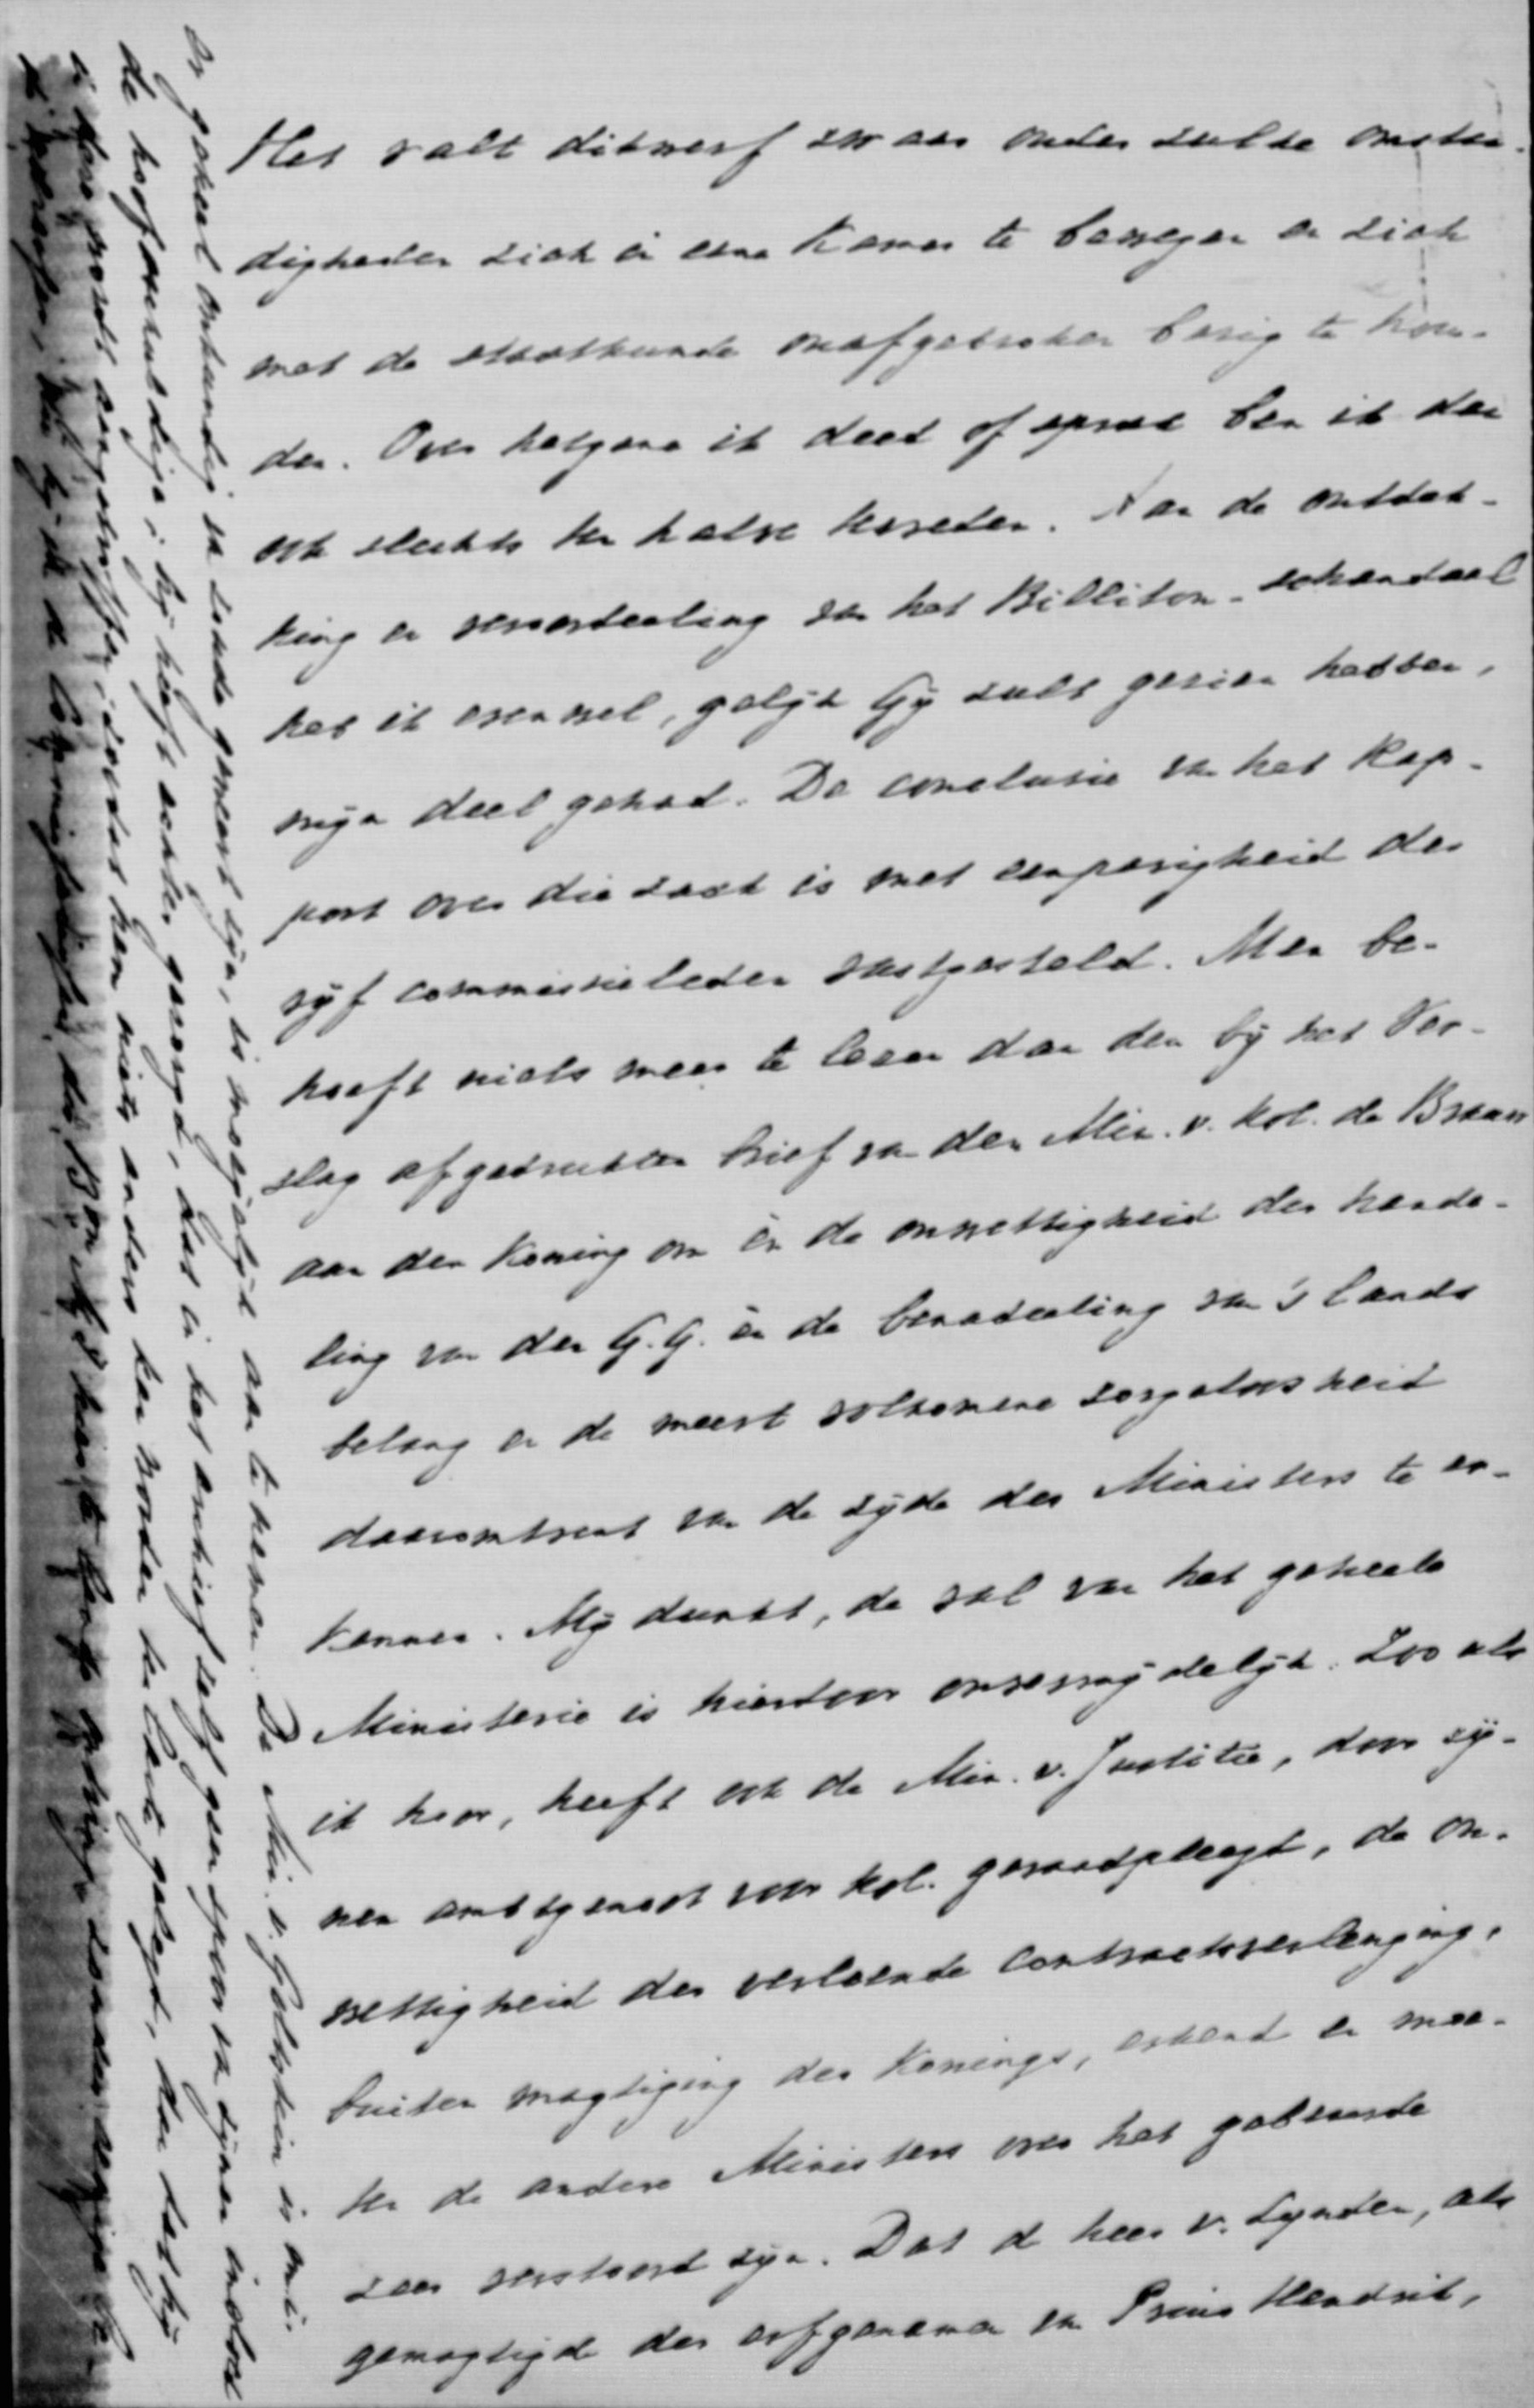 Het valt ditwerf zwaar onder zulke omstan-
digheden zich in eene Kamer te bewegen en zich
met de staatkunde onafgebroken bezig te hou-
den. Over hetgene ik deed of spreek ben ik dan
ook slechts ten halve tevreden. Aan de ontdek-
king en veroordeeling van het Billiton-schandaal
heb ik evenwel, gelijk Gij zult gezien hebben,
mijn deel gehad. De conclusie van het Rap-
port over die zaak is met eenparigheid der
vijf commissieleden vastgesteld. Men be-
hoeft niets meer te lezen dan den bij het Ver-
slag afgedrukten brief van den Min. v. Kol. de Brauw
aan den Koning om èn de onwettigheid der hande-
ling van den G.G. èn de benadeeling van 's lands
belang en de meest volkomene zorgeloosheid
daaromtrent van de zijde des Ministers te er-
kennen. Mij dunkt, de val van het geheele
Ministerie is hierdoor onvermijdelijk. Zoo als
ik hoor, heeft ook de Min. v. Justitie, door zij-
nen ambtgenoot voor Kol. geraadpleegd, de on-
wettigheid der verleende contractsverlenging,
buiten magtiging des Konings, erkend en moe-
ten de andere Ministers over het gebeurde
zeer verstoord zijn. Dat de heer v. Lynden, als
gemagtigde der erfgenamen van Prins Hendrik,
er geheel onkundig van zoude geweest zijn, is moeijelijk aan te nemen. De Min. v. Goltstein is m.i.
de hoofdschuldige; hij heeft echter gezorgd, dat in het archief zelf geen spoor van zijnen invloed
wordt aangetroffen, zoodat hem niets anders kan worden ten laste gelegd, dan dat hij